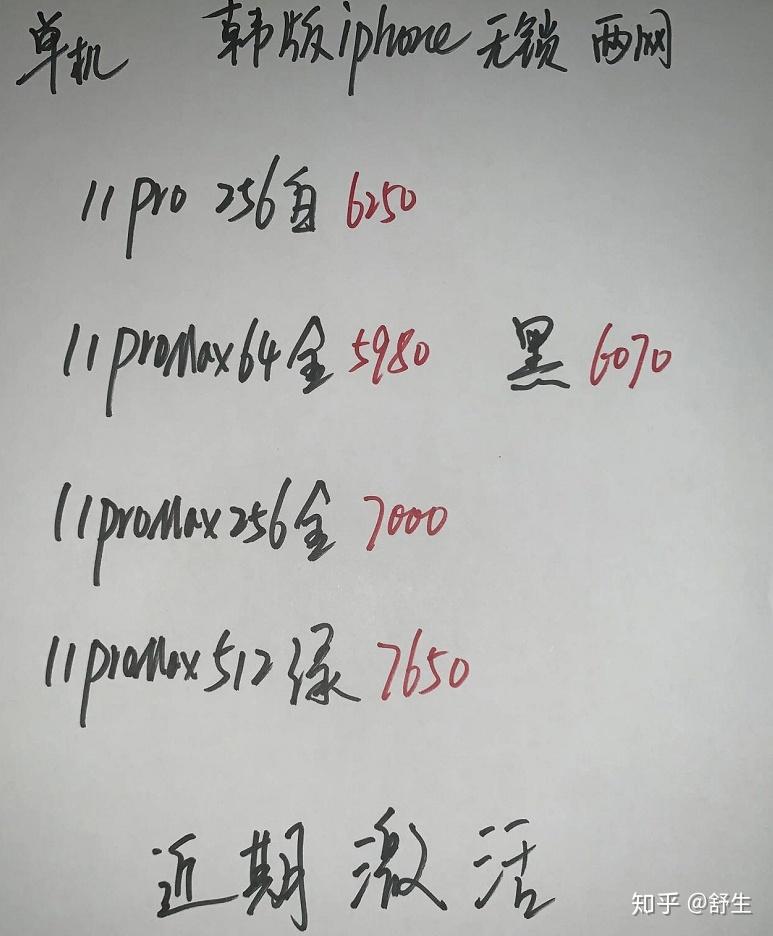 单机 韩版iphone 无锁 两网
11pro 256白 6250
11proMax64金 5980 黑 6070
11proMax256金 7000
11proMax512绿 7650
近期激活
知乎 @舒生